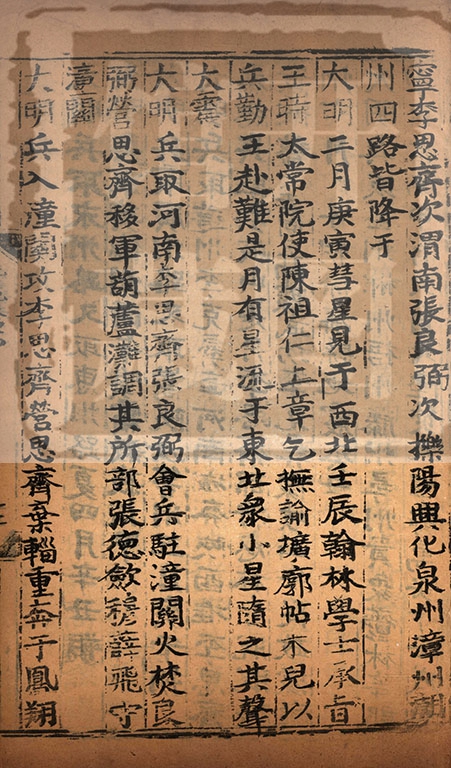 寧李思齊次渭南張良弼次櫟陽興化泉州漳州潮
州四路皆降于
大明二月庚寅彗星見于西北壬辰翰林學士承旨
王時太常院使陳祖仁上章乞撫諭擴廓帖木兒以
兵勤王赴難是月有星流于東北衆小星隨之其聲
大震
大明兵取河南李思齊張良弼會兵駐潼關火焚良
弼營思齊移軍葫蘆灘調其所部張德欽穆薛飛守
潼關
大明兵入潼關攻李思齊營思齊棄輜重奔于鳳翔